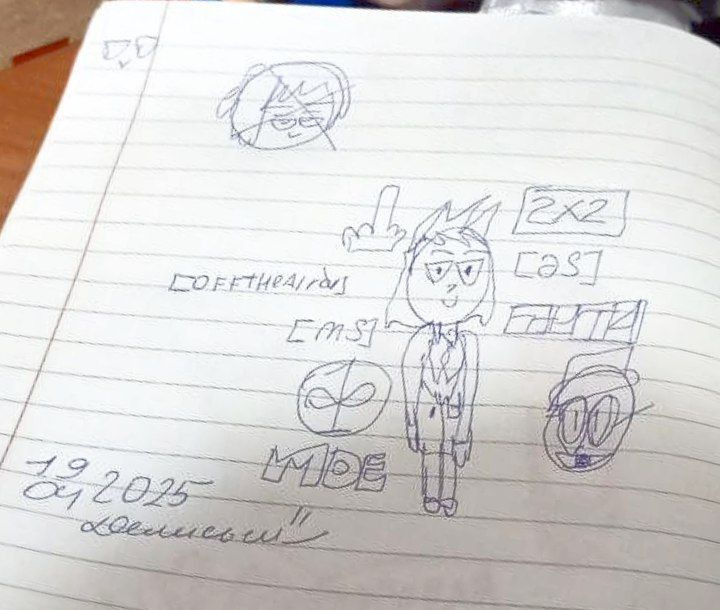 2X2
[as]
[OFFTHEAIR]
[ms]
MDE
19
04 2025